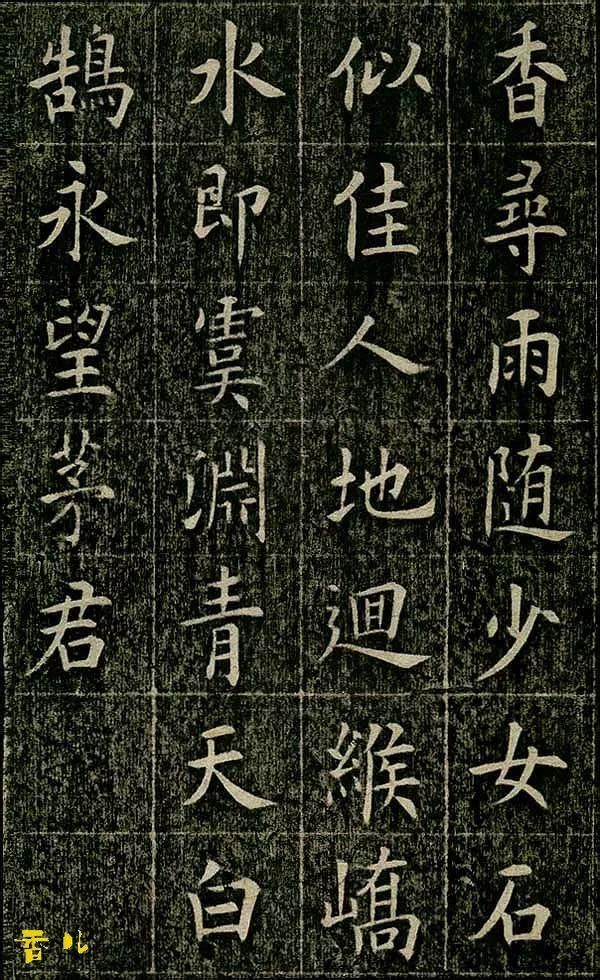 香尋雨随少女石
似佳人地迴緱嶠
水即虞淵青天白
鵠永望茅君